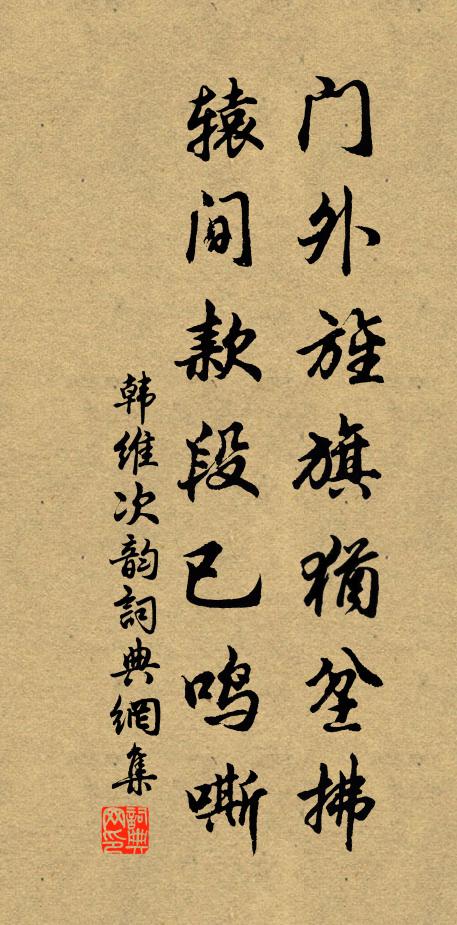 门外旌旗犹坌拂
辕间款段已鸣嘶
韩维次韵詞典網集
詞典网印